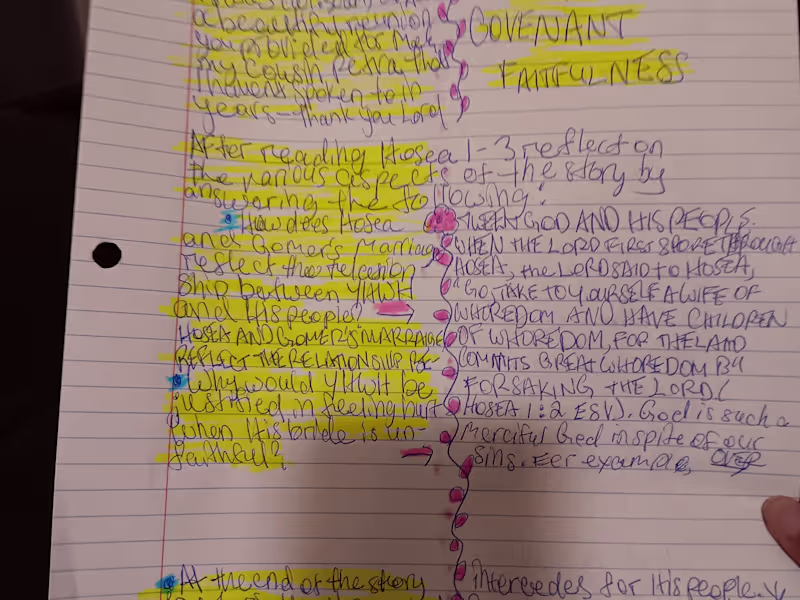 a beautiful reunion
you provided for me &
my cousin Petra that
I havent spoken to in
years—thank you Lord
COVENANT
FAITFULNESS
After reading Hosea 1-3 reflect on
the various aspects of the story by
answering the following:
How does Hosea
and Gomer's Marriage
reflect the relation
ship between YHWH
and His people?
HOSEA AND GOMER'S MARRAIGE
REFLECT THE RELATIONSHIP BE-
TWEEN GOD AND HIS PEOPLE.
WHEN THE LORD FIRST SPOKE THROUGH
HOSEA, the LORD SAID TO HOSEA,
"GO, TAKE TO YOURSELF A WIFE OF
WHOREDOM AND HAVE CHILDREN
OF WHOREDOM, FOR THE LAND
COMMITS GREAT WHOREDOM BY
FORSAKING THE LORD (
HOSEA 1:2 ESV). God is such a
Merciful God in spite of our
sins. For example, OVER
why would YHWH be
justified in feeling hurt
when His bride is un-
faithful?
At the end of the story
intercedes for His people.